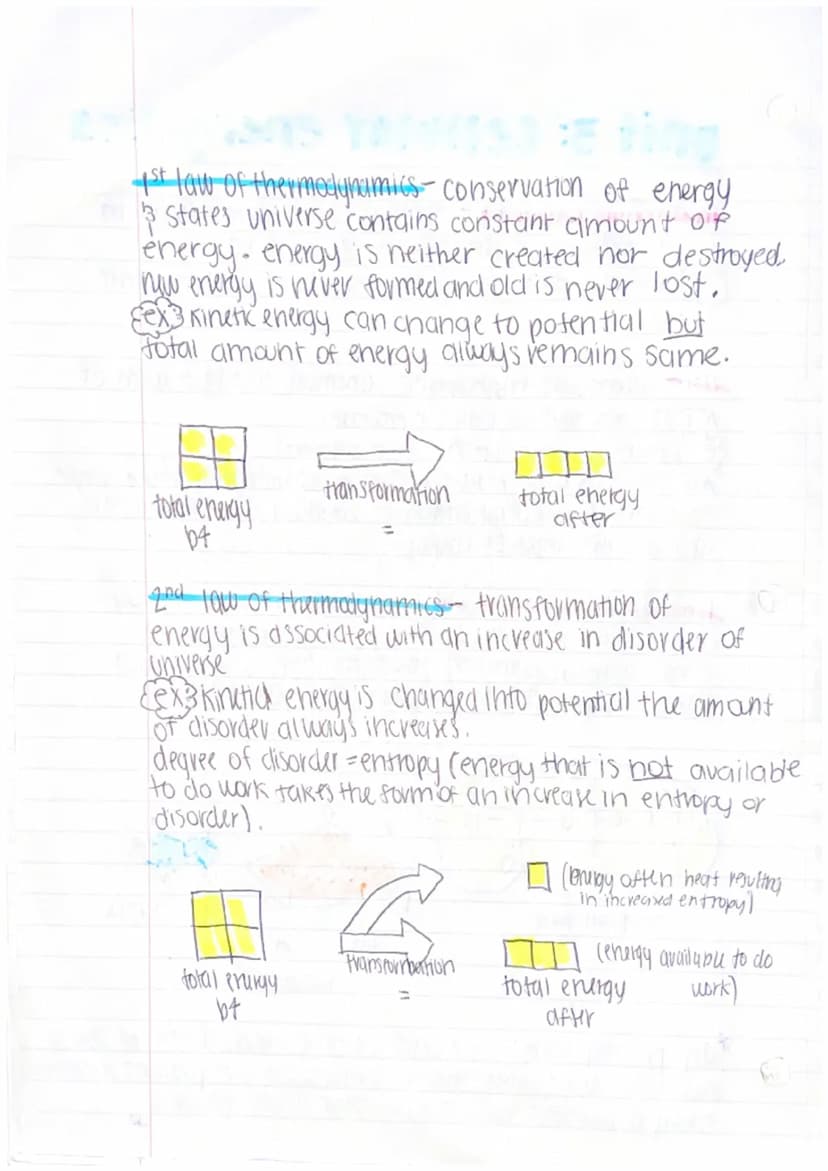 1st law of thermodynamics - conservation of energy
& states universe contains constant amount of
energy. energy is neither created nor destroyed.
new energy is never formed and old is never lost.
ex: kinetic energy can change to potential but
total amount of energy always remains same.
total energy
b4
transformation
=
total energy
after
2nd law of thermodynamics - transformation of
energy is associated with an increase in disorder of
universe
ex: kinetic energy is changed into potential the amant
of disorder always increases.
degree of disorder = entropy (energy that is not available
to do work takes the form of an increase in entropy or
disorder).
total energy
b4
transformation
=
(energy often heat resulting
in increased entropy)
(energy available to do
work)
total energy
after